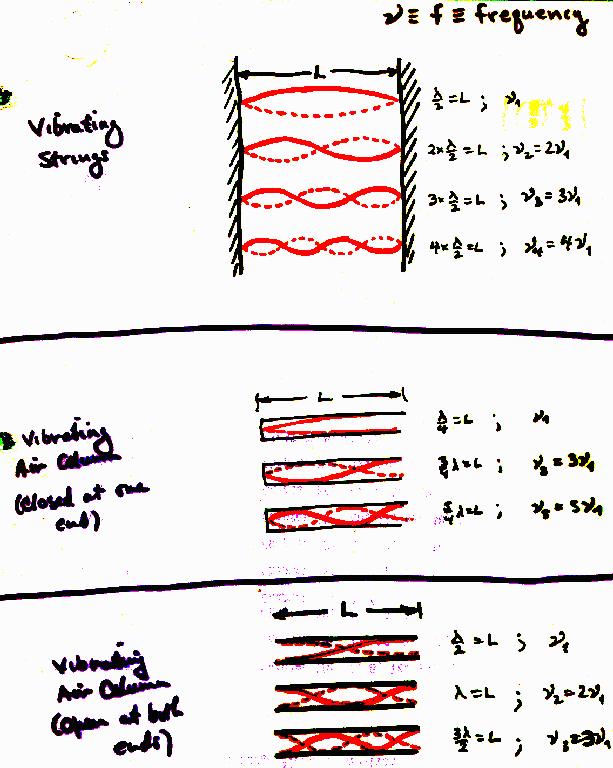 ν ≡ f ≡ frequency
L
Vibrating
Strings
λ/2 = L ; ν₁
2×λ/2 = L ; ν₂ = 2ν₁
3×λ/2 = L ; ν₃ = 3ν₁
4×λ/2 = L ; ν₄ = 4ν₁
L
Vibrating
Air Column
(closed at one
end)
λ/4 = L ; ν₁
3/4 λ = L ; ν₃ = 3ν₁
5/4 λ = L ; ν₅ = 5ν₁
L
Vibrating
Air Column
(Open at both
ends)
λ/2 = L ; ν₁
λ = L ; ν₂ = 2ν₁
3λ/2 = L ; ν₃ = 3ν₁